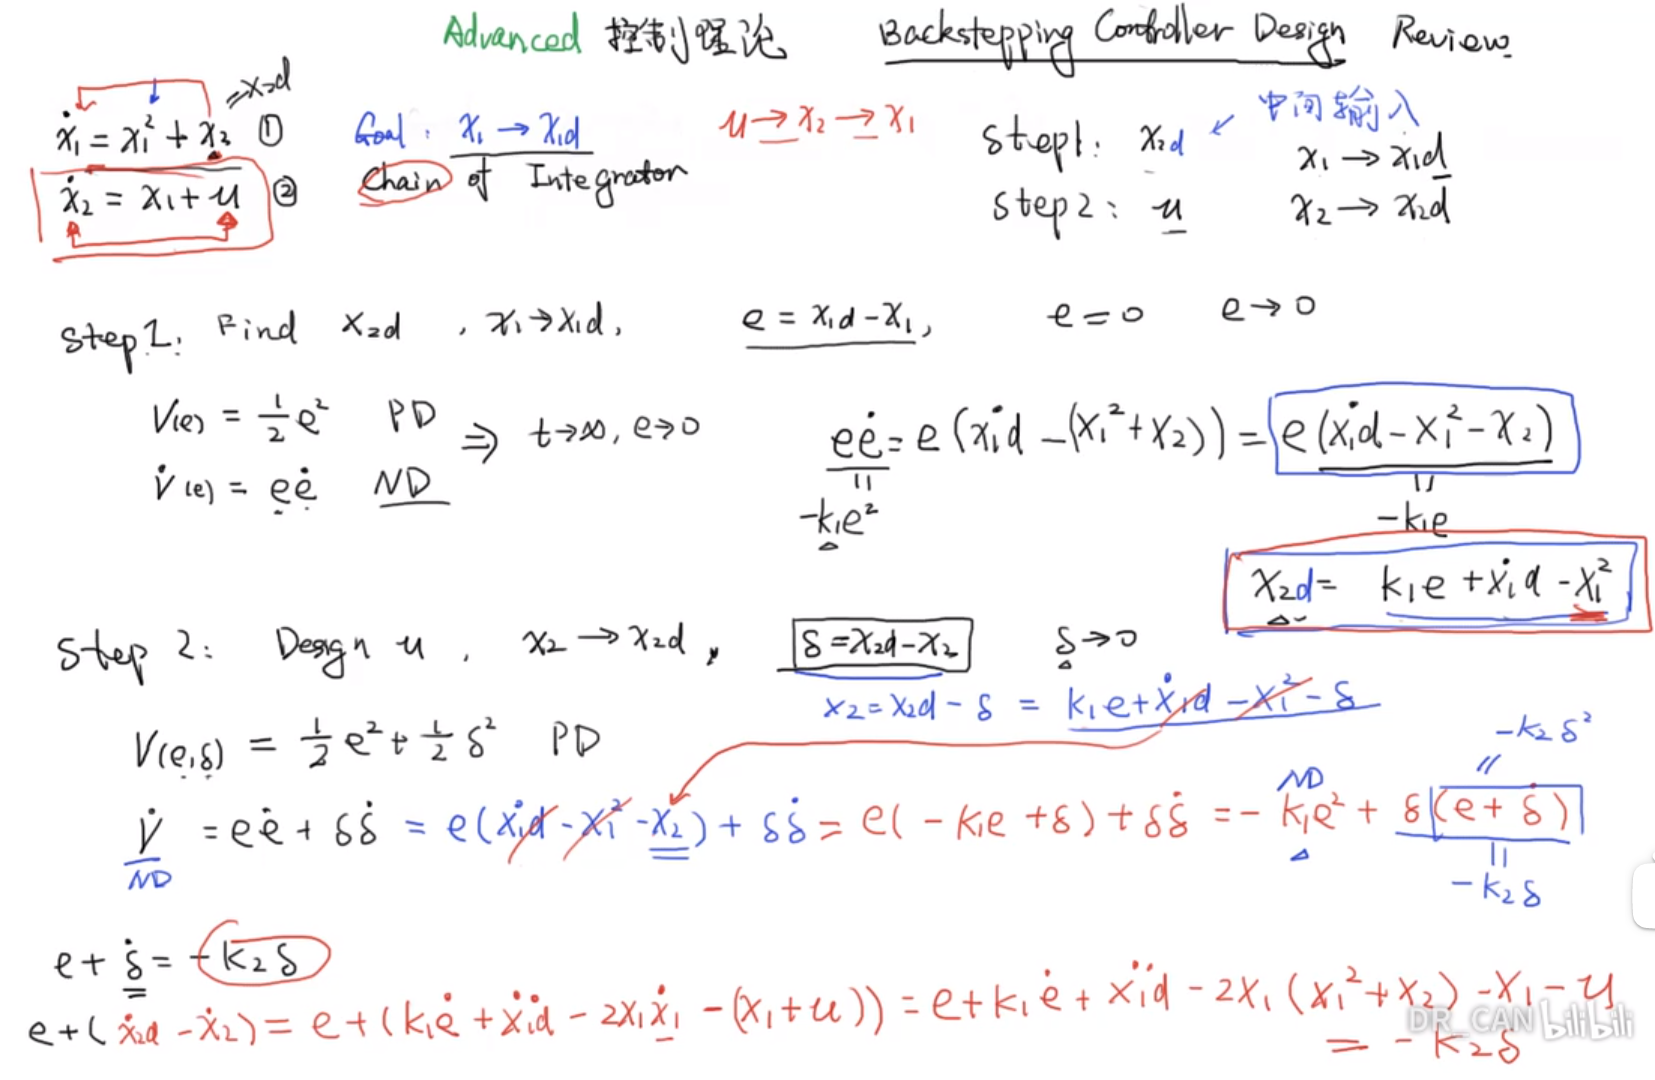 Advanced 控制理论 Backstepping Controller Design Review
ẋ₁ = x₁² + x₂ ① ⇒x₂d
ẋ₂ = x₁ + u ②
Goal: x₁ → x₁d
Chain of Integrator
u → x₂ → x₁
Step1: x₂d ← 中间输入 x₁ → x₁d
Step2: u x₂ → x₂d
Step 1: Find x₂d , x₁→x₁d, e = x₁d - x₁, e = 0 e → 0
V(e) = 1/2 e² PD
V̇(e) = eė ND
⇒ t→∞, e→0
eė = e(ẋ₁d - (x₁² + x₂)) = e(ẋ₁d - x₁² - x₂)
|| -k₁e²
|| -k₁e
x₂d = k₁e + ẋ₁d - x₁²
Step 2: Design u , x₂ → x₂d , δ = x₂d - x₂ δ → 0
x₂ = x₂d - δ = k₁e + ẋ₁d - x₁² - δ
V(e,δ) = 1/2 e² + 1/2 δ² PD
V̇ = eė + δδ̇ = e(ẋ₁d - x₁² - x₂) + δδ̇ = e(-k₁e + δ) + δδ̇ = -k₁e² + δ(e + δ̇)
ND
ND
-k₂δ² //
|| -k₂δ
e + δ̇ = -k₂δ
e + (ẋ₂d - ẋ₂) = e + (k₁ė + ẍ₁d - 2x₁ẋ₁ - (x₁ + u)) = e + k₁ė + ẍ₁d - 2x₁(x₁² + x₂) - x₁ - u
= -k₂δ
DR_CAN bilibili